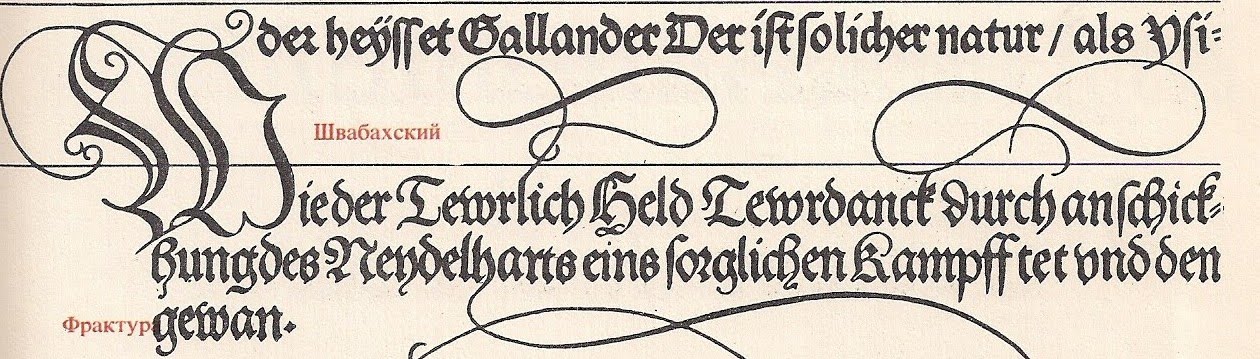 der heÿſſet Gallander Der iſt ſolicher natur / als Pſi⸗
Швабахский
Wie der Tewrlich Held Tewrdanck durch anſchick⸗
hung des Neydelharts eins ſorglichen Kampff tet vnd den
Фрактура
gewan.